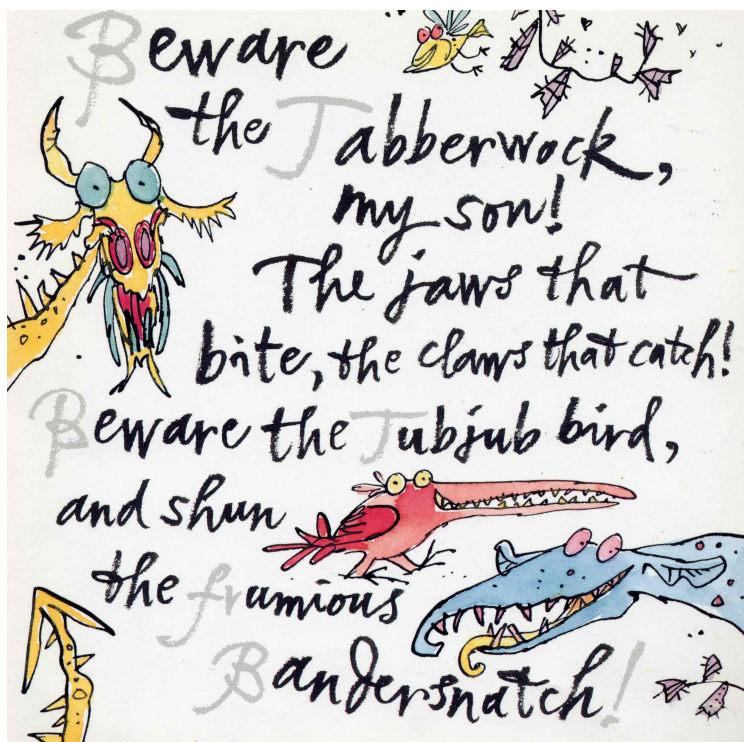 Beware
the Jabberwock,
my son!
The jaws that
bite, the claws that catch!
Beware the Jubjub bird,
and shun
the frumious
Bandersnatch!